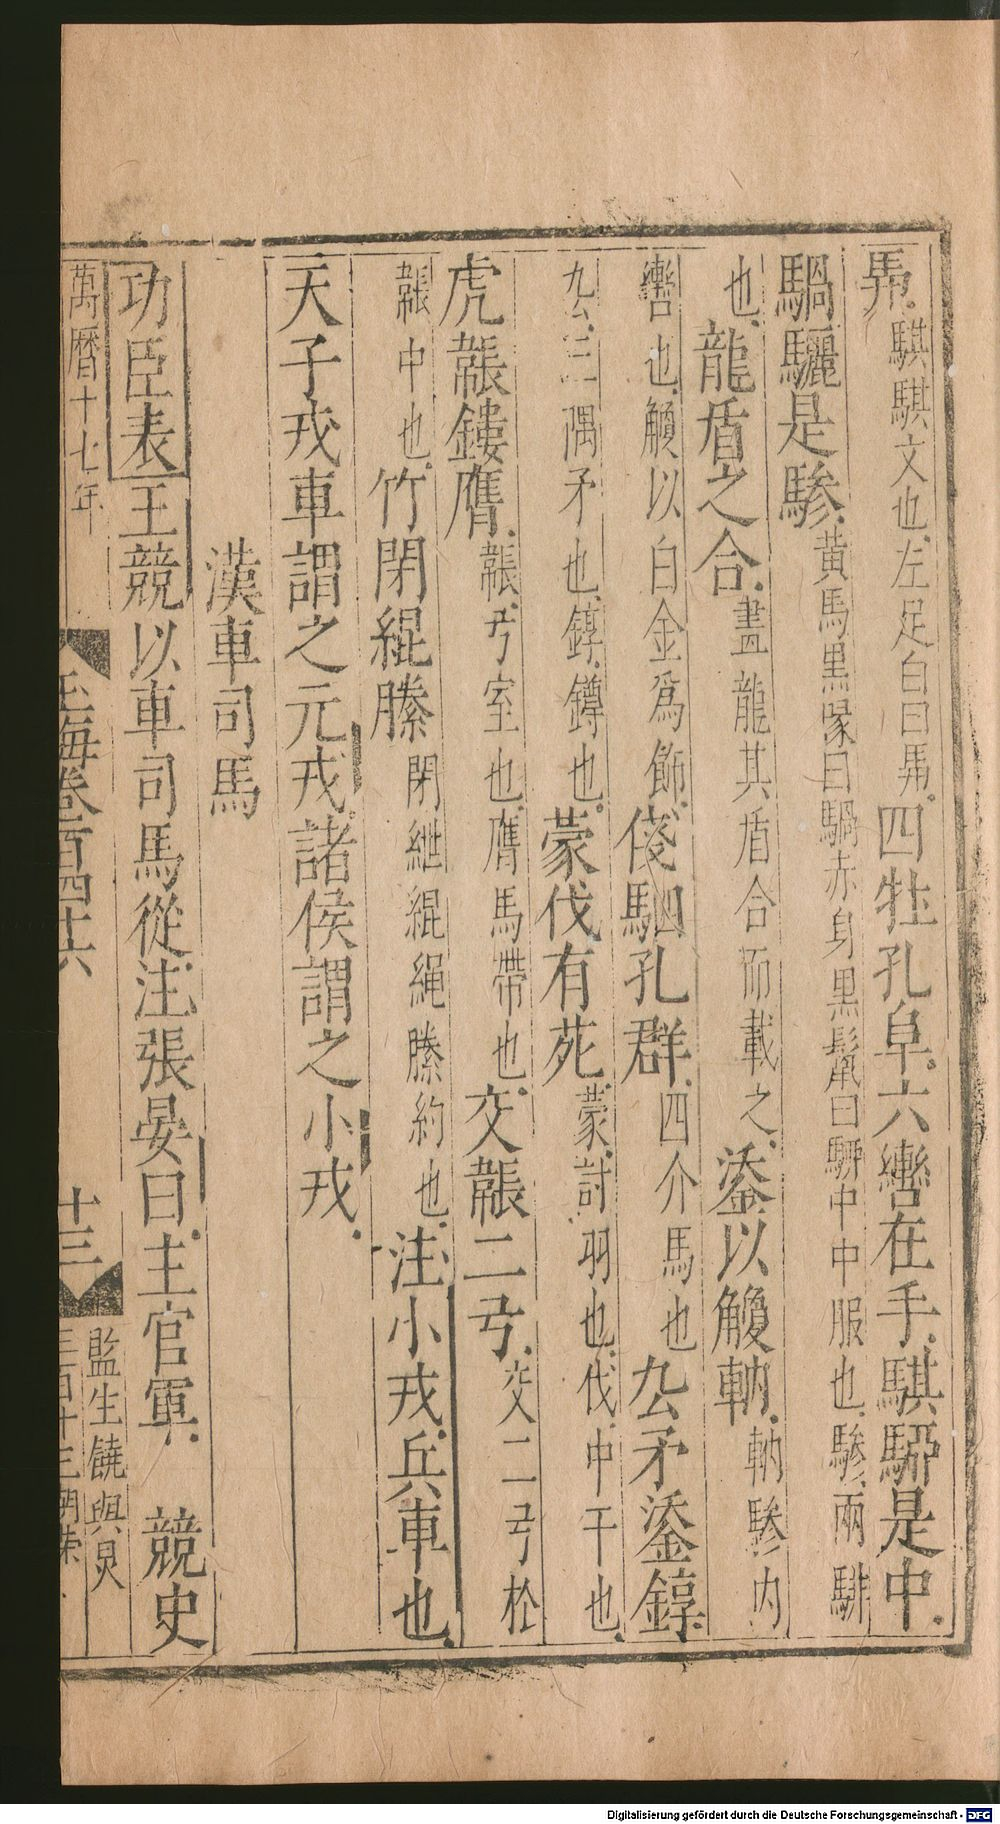 馵騏騏文也左足白曰馵四牡孔阜六轡在手騏駵是中
騧驪是驂黃馬黑喙曰騧赤身黑鬣曰駵中中服也驂兩騑
也龍盾之合畫龍其盾合而載之鋈以觼軜軜驂内
轡也觼以白金爲飾俴駟孔群四介馬也厹矛鋈錞
厹三隅矛也錞鐏也蒙伐有苑蒙討羽也伐中干也
虎韔鏤膺韔弓室也膺馬帶也交韔二弓交二弓於
韔中也竹閉緄縢閉紲緄繩縢約也注小戎兵車也
天子戎車謂之元戎諸侯謂之小戎
漢車司馬
功臣表王競以車司馬從注張晏曰主官軍 競史
萬曆十七年 玉海卷一百四十六 十三 監生饒與
Digitalisierung gefördert durch die Deutsche Forschungsgemeinschaft - DFG